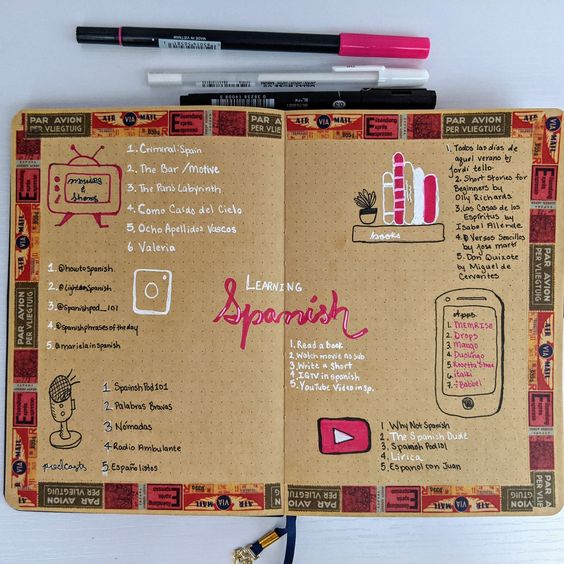 MADE IN VIETNAM
PAR AVION
PER VLIEGTUIG
AIR VIA MAIL
movies
&
shows
1. Criminal Spain
2. The Bar /Motive
3. The Pan's Labyrinth
4 Como Caídos del Cielo
5 Ocho Apellidos Vascos
6 Valeria
1. @howtospanish
2. @lightonSpanish
3. @spanishpod_101
4. @spanishphrasesoftheday
5. @marielainspanish
podcasts
1 Spainsh Pod101
2 Palabras Bravas
3 Nómadas
4 Radio Ambulante
5 Españolistos
LEARNING
Spanish
1. Read a book
2. Watch movie no sub
3. Write a short
4. IGTV in spanish
5. YouTube Video in sp.
books
1. Todos los días de
aquel verano by
Jordi tello
2. Short Stories for
Beginners by
Olly Richards
3. Las Casas de los
Espíritus by
Isabel Allende
4. Versos Sencillos
by Jose martí
5. Don Quixote
by Miguel de
Cervantes
Apps
1. MEMRISE
2. Drops
3. Mango
4. Duolingo
5. Rosetta Stone
6. italki
7. Babbel
1. Why Not Spanish
2. The Spanish Dude
3. Spanish Pod101
4. Lirica
5. Espanol con Juan
PAR AVION
PER VLIEGTUIG
AIR VIA MAIL